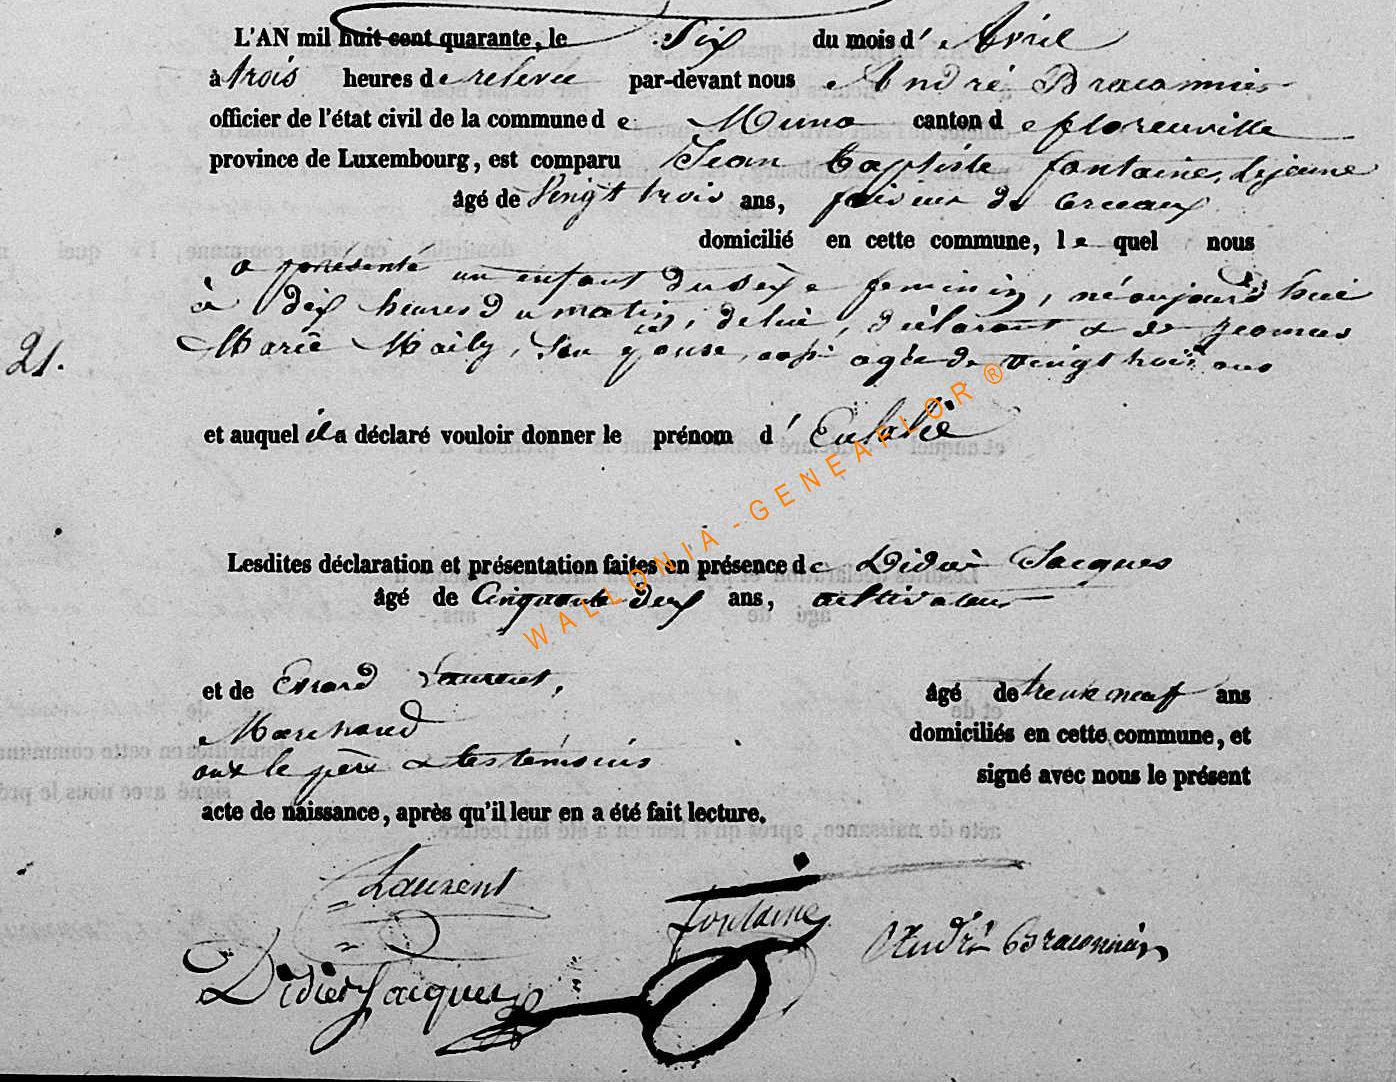 L'AN mil huit cent quarante, le Six du mois d' Avril
à trois heures de relevée par-devant nous André Braconnier
officier de l'état civil de la commune de Muno canton de florenville
province de Luxembourg, est comparu Jean Baptiste fontaine, Lejeune
âgé de Vingt trois ans, faiseur de cerceaux
domicilié en cette commune, le quel nous
a présenté un enfant du sexe feminin, né aujourd'hui
à dix heures du matin, de lui, déclarant & de Jeanne
21.
Marie Maily, Son epouse, agée de vingt trois ans
et auquel il a déclaré vouloir donner le prénom d' Eulalie
WALLONIA - GENEAFLOR ®
Lesdites déclaration et présentation faites en présence de Didier Jacques
âgé de Cinquante deux ans, cultivateur
et de Evrard Laurent, âgé de trente neuf ans
Marchand domiciliés en cette commune, et
ont le père & les témoins signé avec nous le présent
acte de naissance, après qu'il leur en a été fait lecture.
Laurent
fontaine
André Braconnier
Didier Jacques